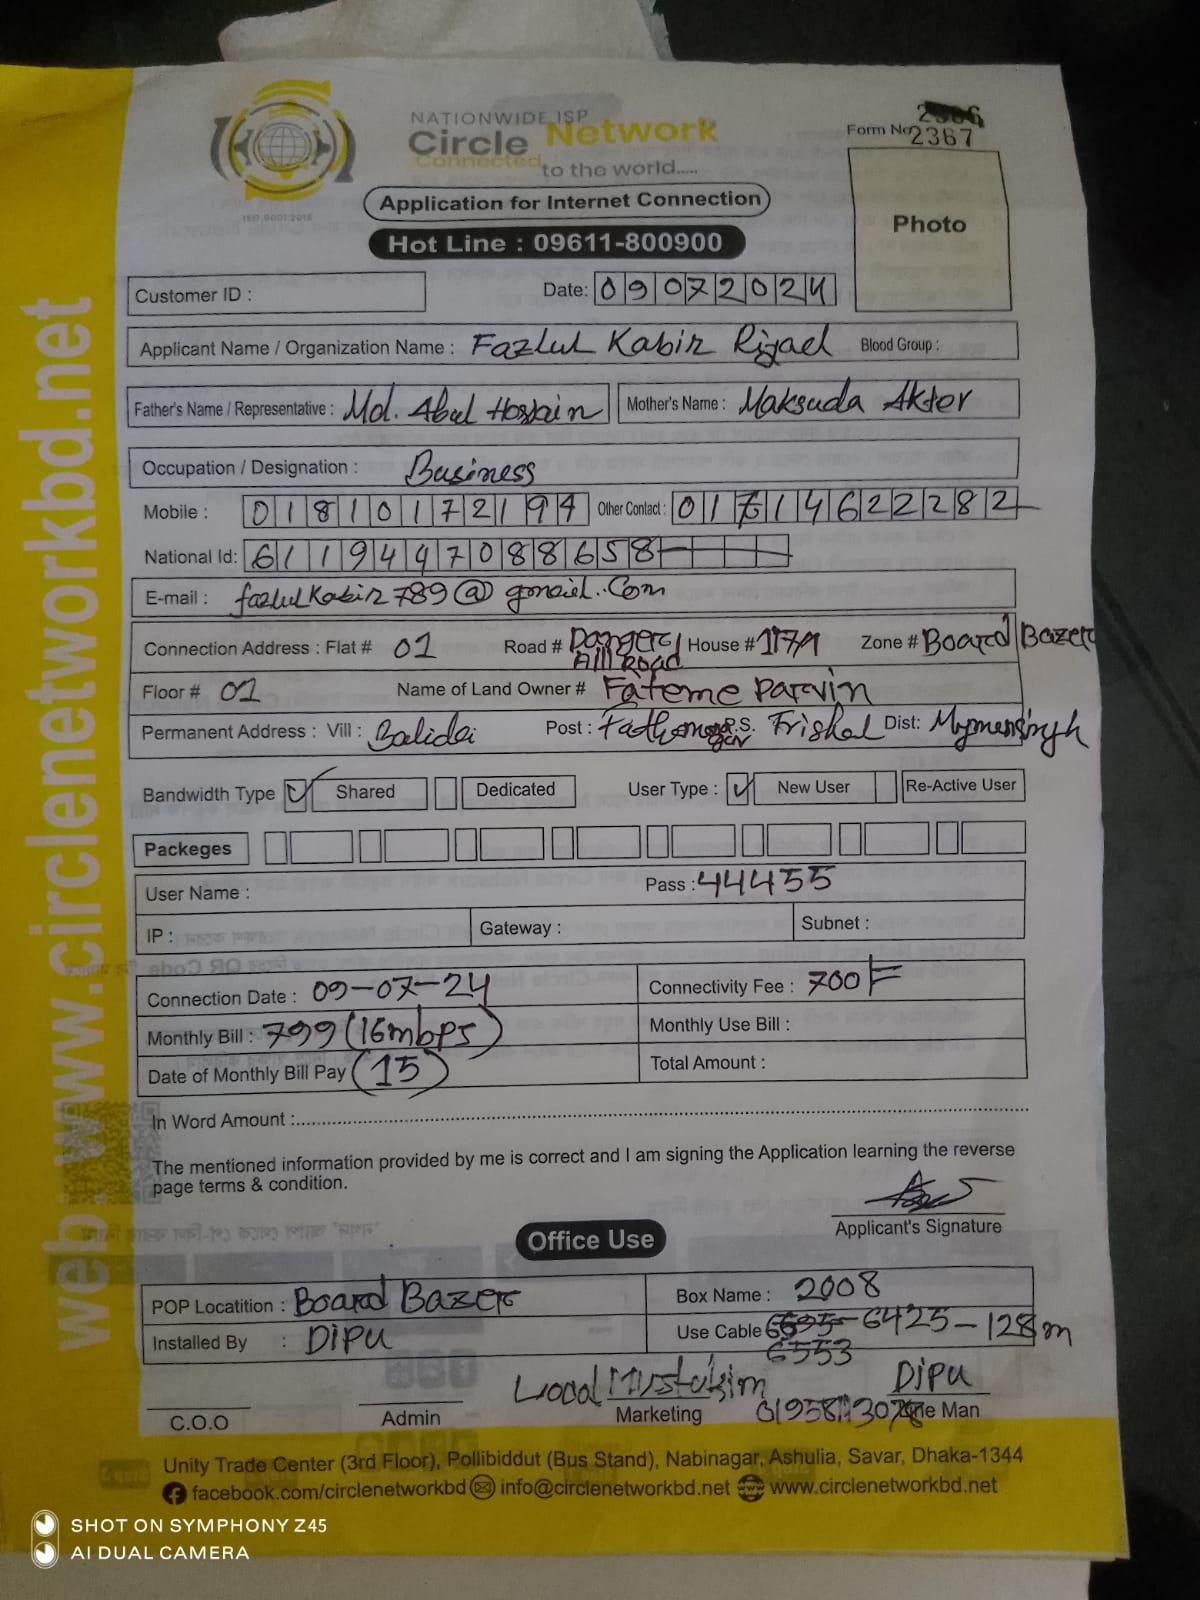 NATIONWIDE ISP
Circle Network
Connected to the world.....
ISO 9001:2015
Form No 2367
Application for Internet Connection
Hot Line : 09611-800900
Photo
Customer ID :
Date: 09072024
Applicant Name / Organization Name : Fazlul Kabir Rijael Blood Group :
Father's Name / Representative : Md. Abul Hossain Mother's Name : Maksuda Akter
Occupation / Designation : Business
Mobile : 01810172194 Other Contact : 01714622282
National Id: 6119447088658
E-mail : fazlulKabir789@gmail.Com
Connection Address : Flat # 01 Road # House # 117/1 Zone # Board Bazer
Road
Floor # 01 Name of Land Owner # Fateme Parvin
Permanent Address : Vill : Balidai Post : P.S. Trishal Dist: Mymensingh
Bandwidth Type Shared Dedicated User Type : New User Re-Active User
Packeges
User Name : Pass : 44455
IP : Gateway : Subnet :
Connection Date : 09-07-24 Connectivity Fee : 700/=
Monthly Bill : 799 (16mbps) Monthly Use Bill :
Date of Monthly Bill Pay (15) Total Amount :
In Word Amount :
The mentioned information provided by me is correct and I am signing the Application learning the reverse
page terms & condition.
Applicant's Signature
Office Use
POP Locatition : Board Bazer Box Name : 2008
Installed By : DIPU Use Cable 6425-128m
6553
Local Mustakim DIPU
C.O.O Admin Marketing Line Man
Unity Trade Center (3rd Floor), Pollibiddut (Bus Stand), Nabinagar, Ashulia, Savar, Dhaka-1344
facebook.com/circlenetworkbd info@circlenetworkbd.net www.circlenetworkbd.net
web: www.circlenetworkbd.net
SHOT ON SYMPHONY Z45
AI DUAL CAMERA